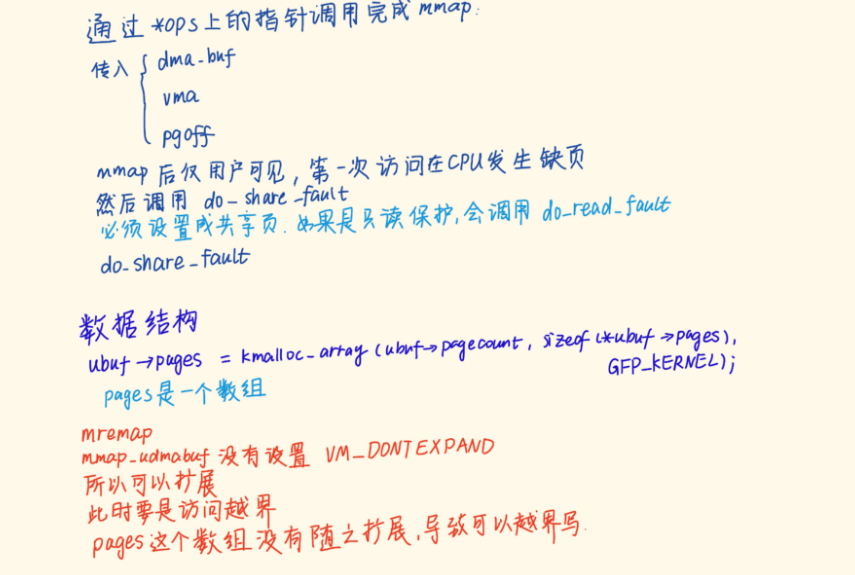 通过 *ops上的指针调用完成 mmap:
传入 { dma-buf
vma
pgoff
mmap 后仅用户可见, 第一次访问在CPU发生缺页
然后调用 do_share_fault
必须设置成共享页. 如果是只读保护, 会调用 do_read_fault
do_share_fault
数据结构
ubuf→pages = kmalloc_array (ubuf→pagecount, sizeof (*ubuf→pages),
GFP_KERNEL);
pages是一个数组
mremap
mmap_udmabuf 没有设置 VM_DONTEXPAND
所以可以扩展
此时要是访问越界
pages这个数组没有随之扩展, 导致可以越界写.